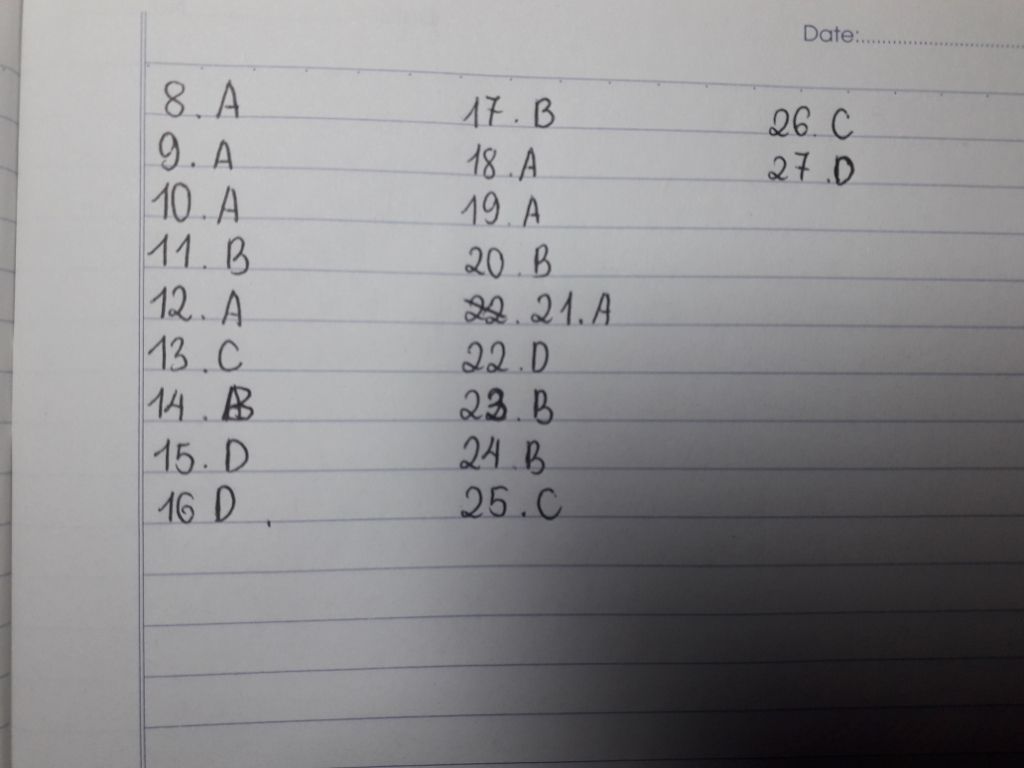 Date:
8. A
9. A
10. A
11. B
12. A
13. C
14. B
15. D
16 D.
17. B
18. A
19. A
20. B
22. 21. A
22. D
23. B
24. B
25. C
26. C
27. D